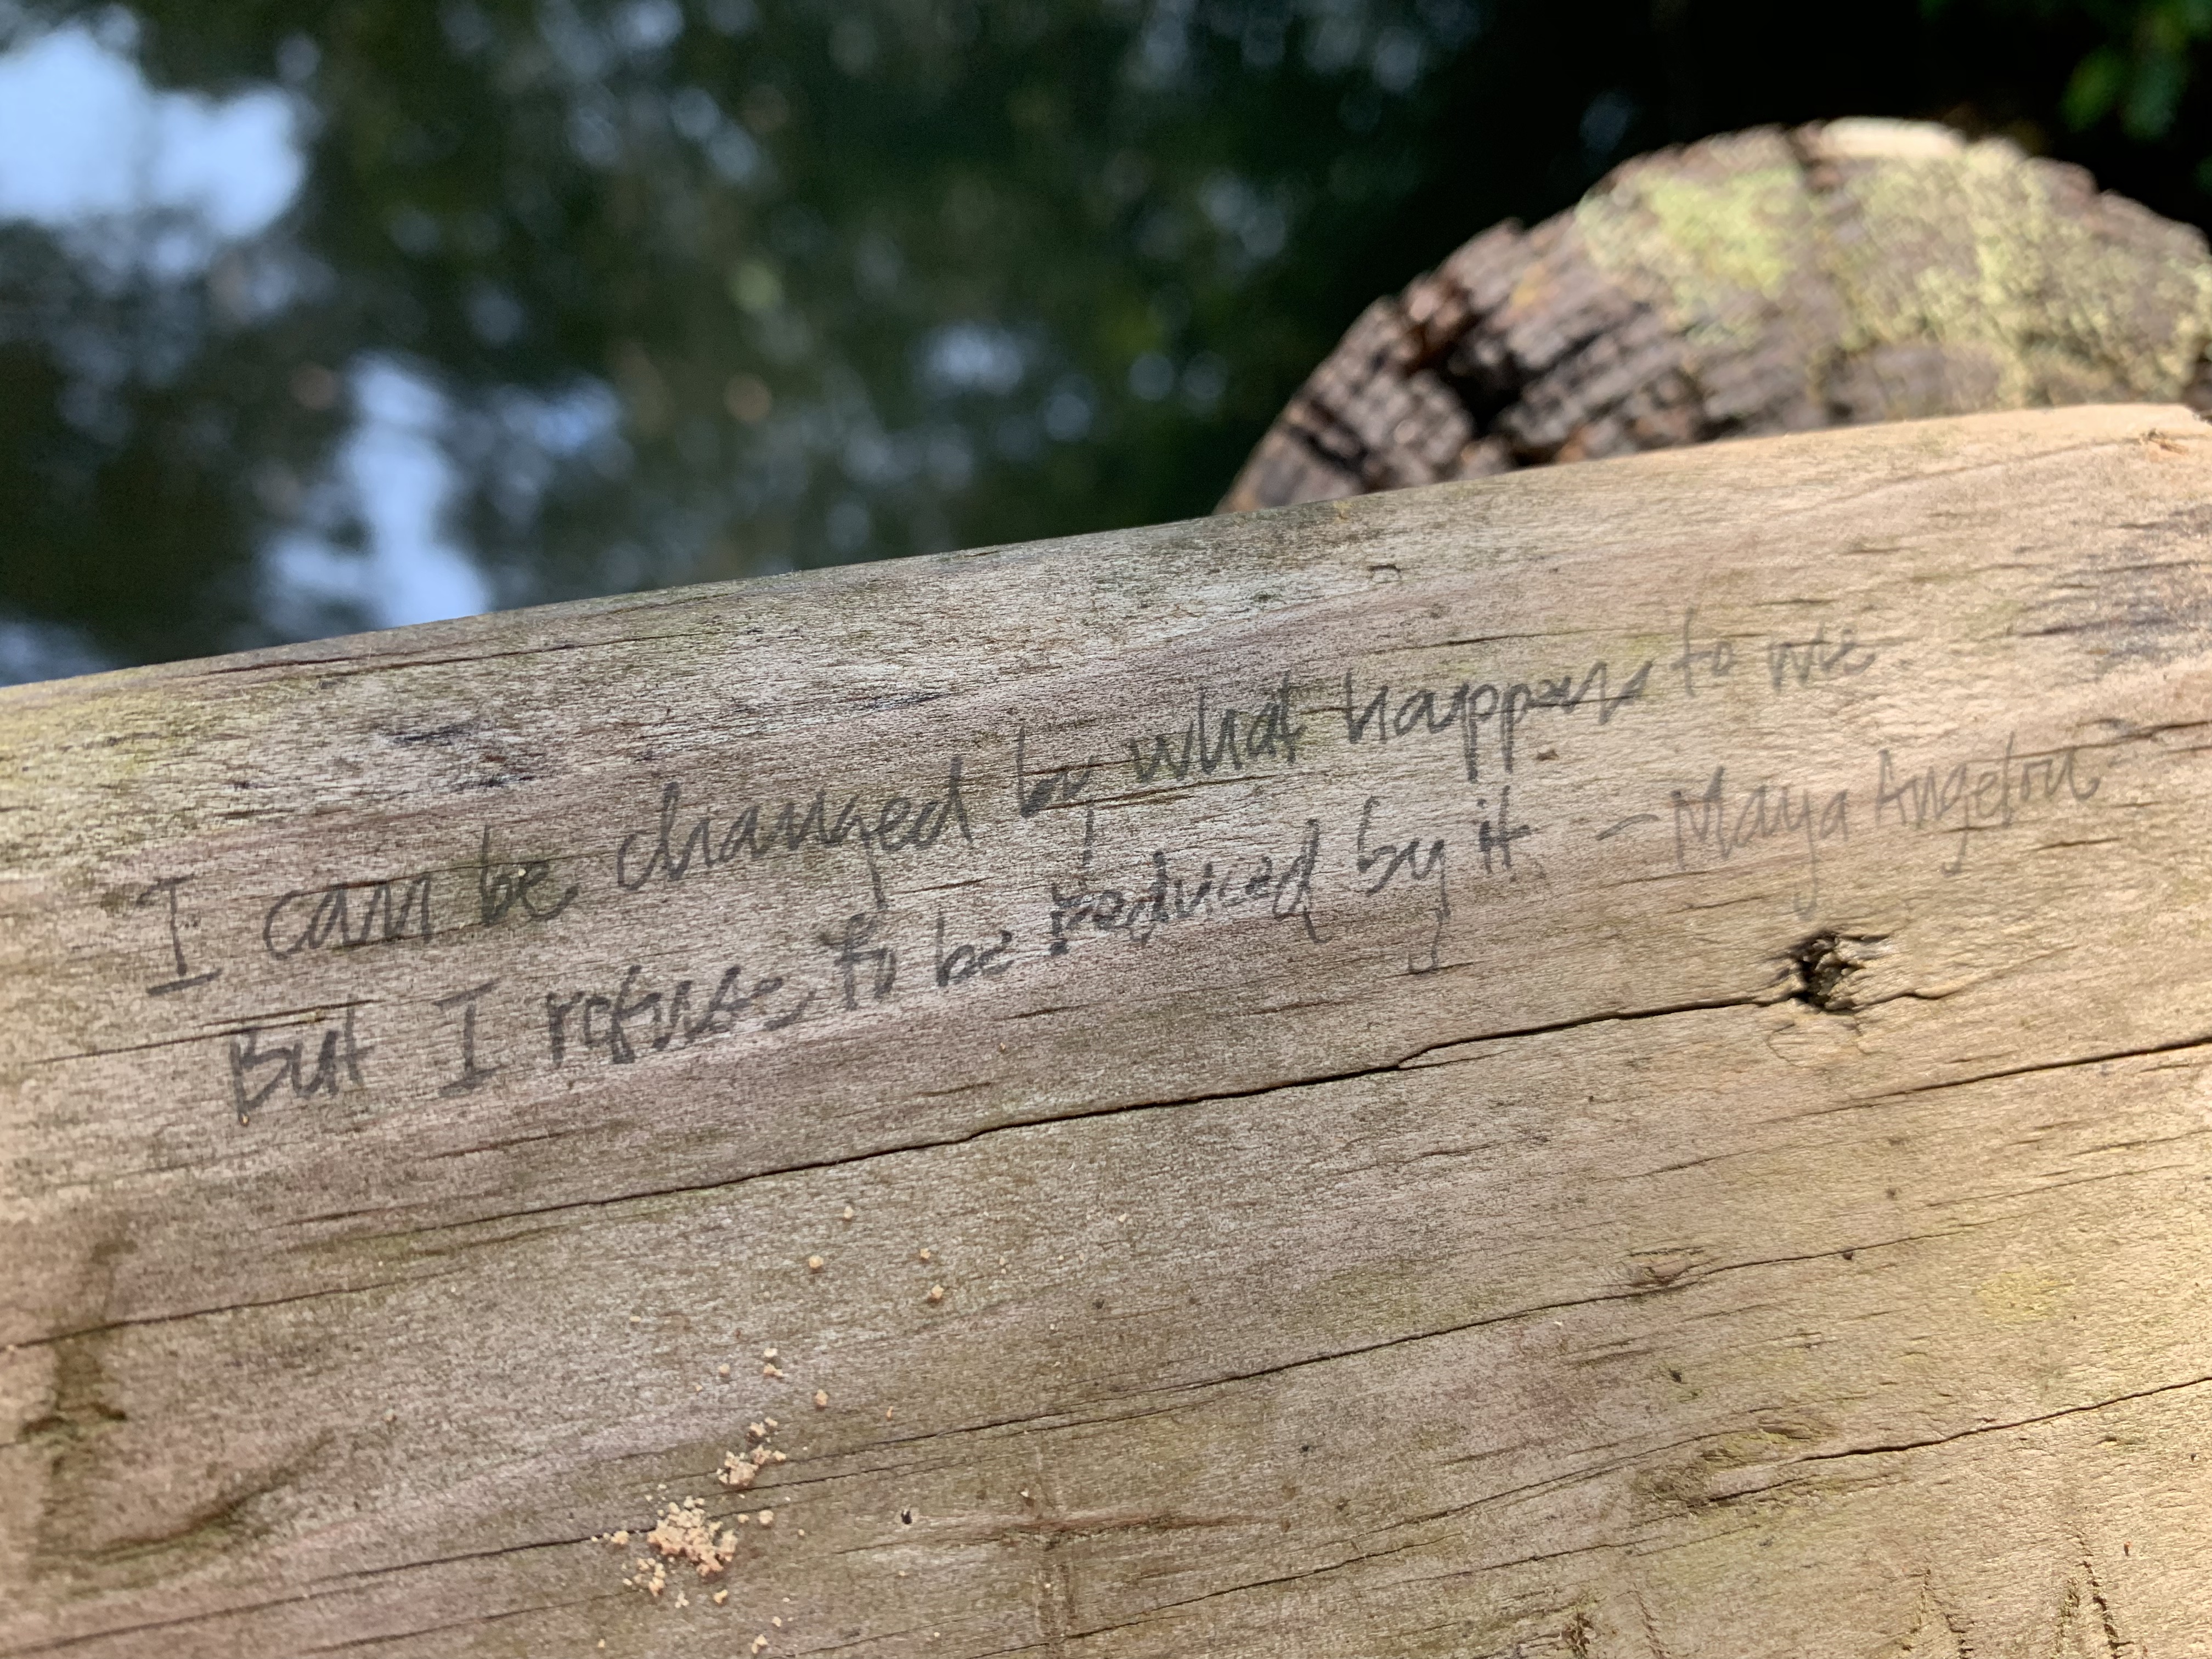 I can be changed by what happens to me
But I refuse to be reduced by it - Maya Angelou